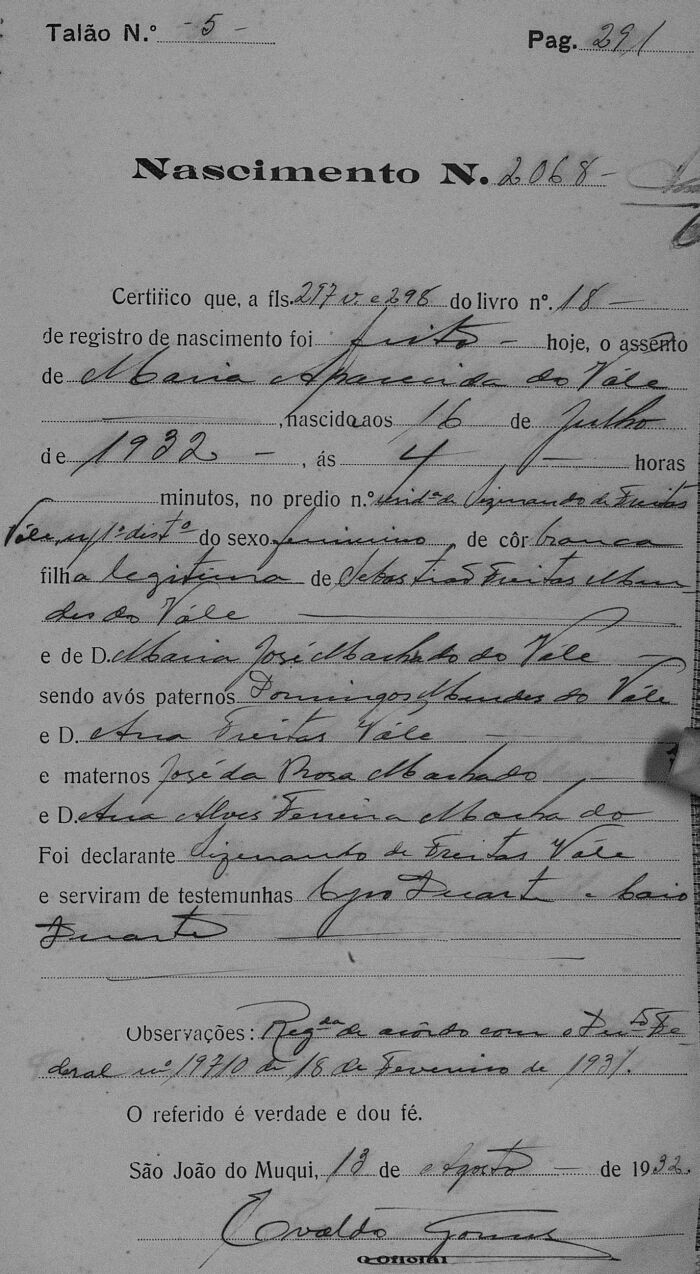 Talão N.º - 5 -
Pag. 291
Nascimento N. 2068 -
Certifico que, a fls. 297 v. e 298 do livro nº. 18 -
de registro de nascimento foi feito - hoje, o assento
de Maria Aparecida do Vále
, nascida aos 16 de Julho
de 1932 - , ás 4 , - horas
minutos, no predio n.º resid.ª de Sizenando de Freitas
Vále, n/ 1º dist.º do sexo feminino, de côr branca
filha legitima de Sebastião Freitas Men-
des do Vále
e de D. Maria José Machado do Vale -
sendo avós paternos Domingos Mendes do Vále
e D. Ana Freitas Vále -
e maternos José da Rosa Machado -
e D. Ana Alves Ferreira Machado
Foi declarante Sizenando de Freitas Vále
e serviram de testemunhas Cyro Duarte e Caio
Duarte
Observações: Reg.da de acôrdo com o Dec.to Fe-
deral nº 19710 de 18 de Fevereiro de 1931.
O referido é verdade e dou fé.
São João do Muqui, 13 de Agosto - de 1932.
Evaldo Gomes
O Oficial